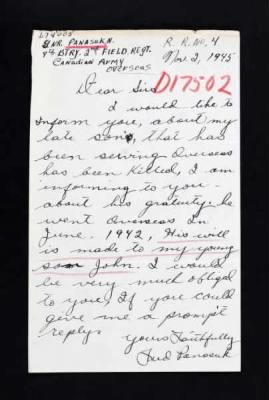 GNR. PANASUK.N.
4th BTRY. 2nd FIELD. REGT.
CANADIAN ARMY
OVERSEAS
R. R. No. 4
Nov. 2, 1945
D17502
Dear Sir:
I would like to
inform you, about my
late son, that has
been serving Overseas
has been killed, I am
informing to you
about his gratuity. he
went Overseas In
June. 1942, His will
is made to my young
son John. I would
be very much obligal
to you, If you could
give me a prompt
reply.
Yours Faithfully
Fred Panasuk